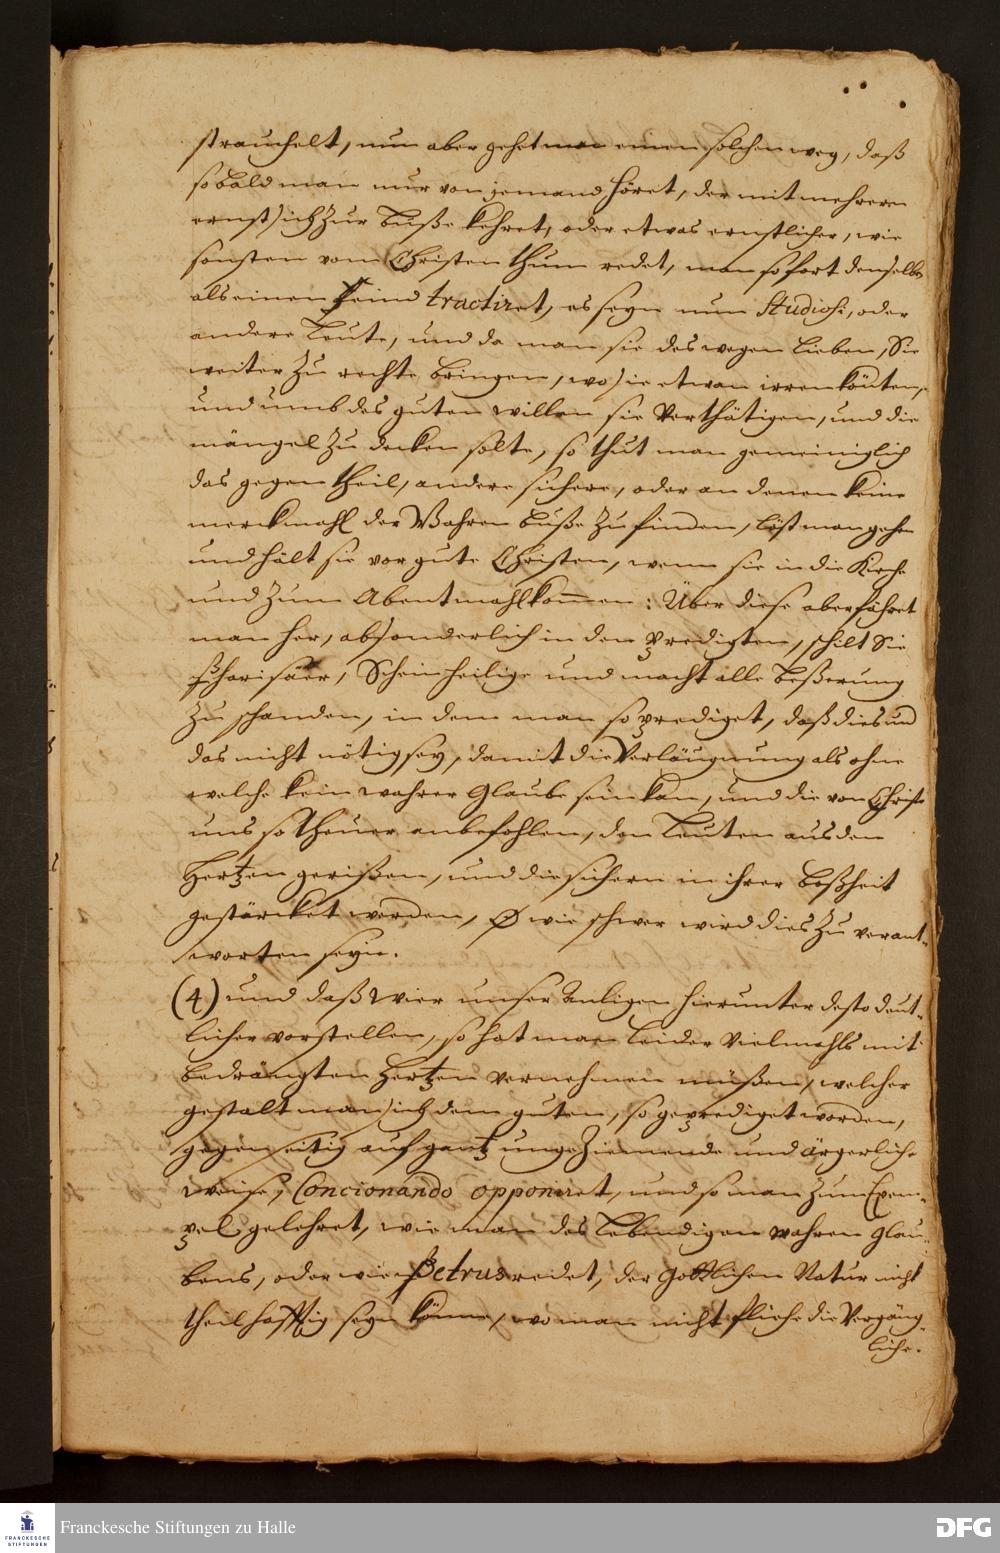 strauchelt, nun aber gehet man einen solchen weg, daß
so bald man nur von jemand höret, der mit mehreren
ernst sich zur Buße kehret, oder etwas ernstlicher, wie
sonsten vom Christenthum redet, man so fort denselben
als einen Feind tractiret, es seyn nun Studiosi, oder
andere Leute, und da man sie deswegen lieben, Sie
weiter zu rechte bringen, wo sie etwan irren könten,
und umb des guten willen sie verthätigen, und die
mängel zu decken solte, so thut man gemeiniglich
das gegentheil, andere sichere, oder an denen keine
merckmahl der Wahren Buße zu finden, läst man gehen
und hält sie vor gute Christen, wenn sie in die Kirche
und zum Abentmahl kom̄en: Über diese aber fähret
man her, absonderlich in den Predigten, schilt Sie
Pharisäer, Scheinheilige und macht alle Beßerung
zu schanden, in dem man so prediget, daß dies und
das nicht nötig sey, damit die Verläugnung als ohne
welche kein wahrer Glaube sein kan, und die von Christo
uns so theuer anbefohlen, den Leuten aus den
Hertzen gerißen, und die sichern in ihrer Boßheit
gestärcket werden, O wie schwer wird dies zu verant-
worten seyn.
(4) und daß wier unser Anligen hierunter desto deut-
licher vorstellen, so hat man leider vielmahls mit
bedrängten Hertzen vernehmen müßen, welcher
gestalt man sich dem guten, so geprediget worden,
gegenseitig auf gantz ungeziemende und ärgerliche
weise, Concionando opponiret, und so man zum Exem-
pel gelehret, wie man des Lebendigen wahren Glau-
bens, oder wie Petrus redet, der Göttlichen Natur nicht
theilhafftig seyn könne, wo man nicht fliehe die Vergäng-
liche.
Franckesche Stiftungen zu Halle
FRANCKESCHE
STIFTUNGEN
DFG